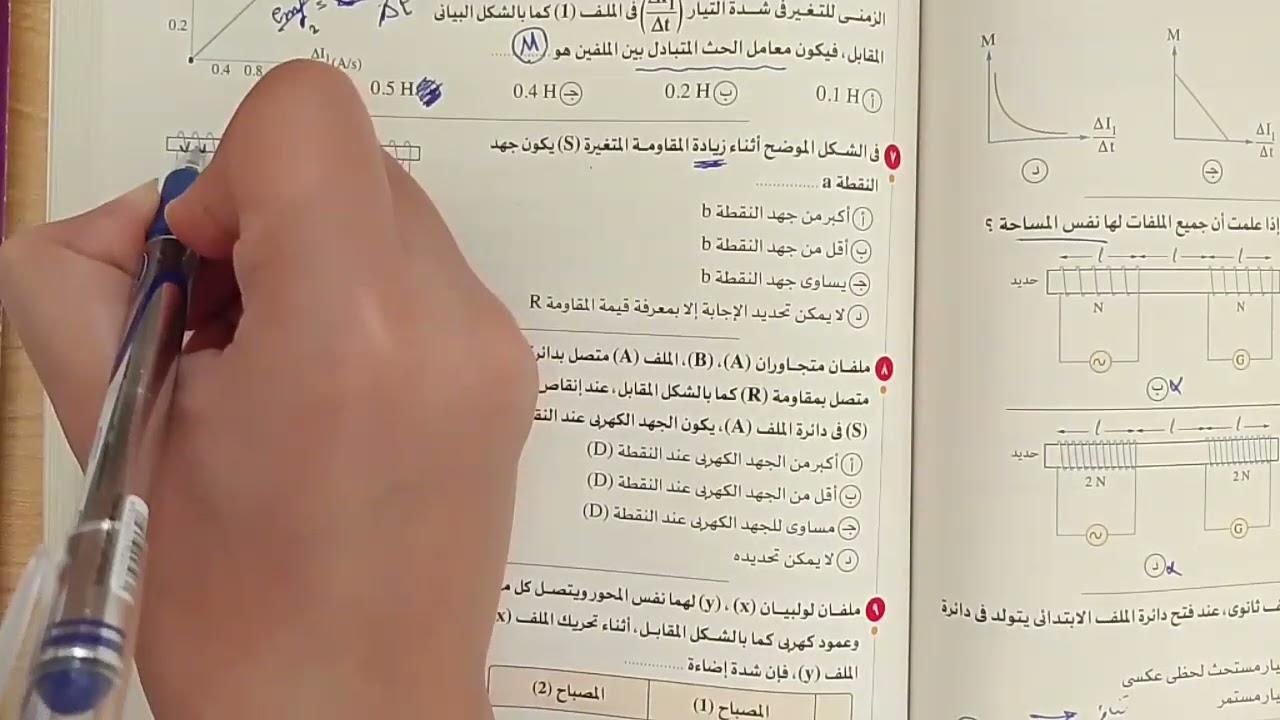 الزمنى للتغير فى شدة التيار (ΔI₁/Δt) فى الملف (1) كما بالشكل البيانى
المقابل، فيكون معامل الحث المتبادل بين الملفين هو ............
M
أ 0.1 H
ب 0.2 H
ج 0.4 H
0.5 H
0.2
0.4 0.8
(A/s)
emf₂ =
Δt
٧ فى الشكل الموضح أثناء زيادة المقاومة المتغيرة (S) يكون جهد
النقطة a ..............
أ أكبر من جهد النقطة b
ب أقل من جهد النقطة b
ج يساوى جهد النقطة b
د لا يمكن تحديد الإجابة إلا بمعرفة قيمة المقاومة R
٨ ملفان متجاوران (A)، (B)، الملف (A) متصل
متصل بمقاومة (R) كما بالشكل المقابل، عند إنقاص
(S) فى دائرة الملف (A)، يكون الجهد الكهربى عند
أ أكبر من الجهد الكهربى عند النقطة (D)
ب أقل من الجهد الكهربى عند النقطة (D)
ج مساوى للجهد الكهربى عند النقطة (D)
د لا يمكن تحديده
٩ ملفان لولبيان (x)، (y) لهما نفس المحور ويتصل كل
وعمود كهربى كما بالشكل المقابل، أثناء تحريك الملف (x
الملف (y)، فإن شدة إضاءة ..............
المصباح (1) المصباح (2)
M M
ΔI₁/Δt ΔI₁/Δt
ج د
إذا علمت أن جميع الملفات لها نفس المساحة ؟
l l l
حديد
N N
G
ب
l l l
حديد
2 N 2 N
G
د
ثانوى، عند فتح دائرة الملف الابتدائى يتولد فى دائرة
مستحث لحظى عكسى
مستمر